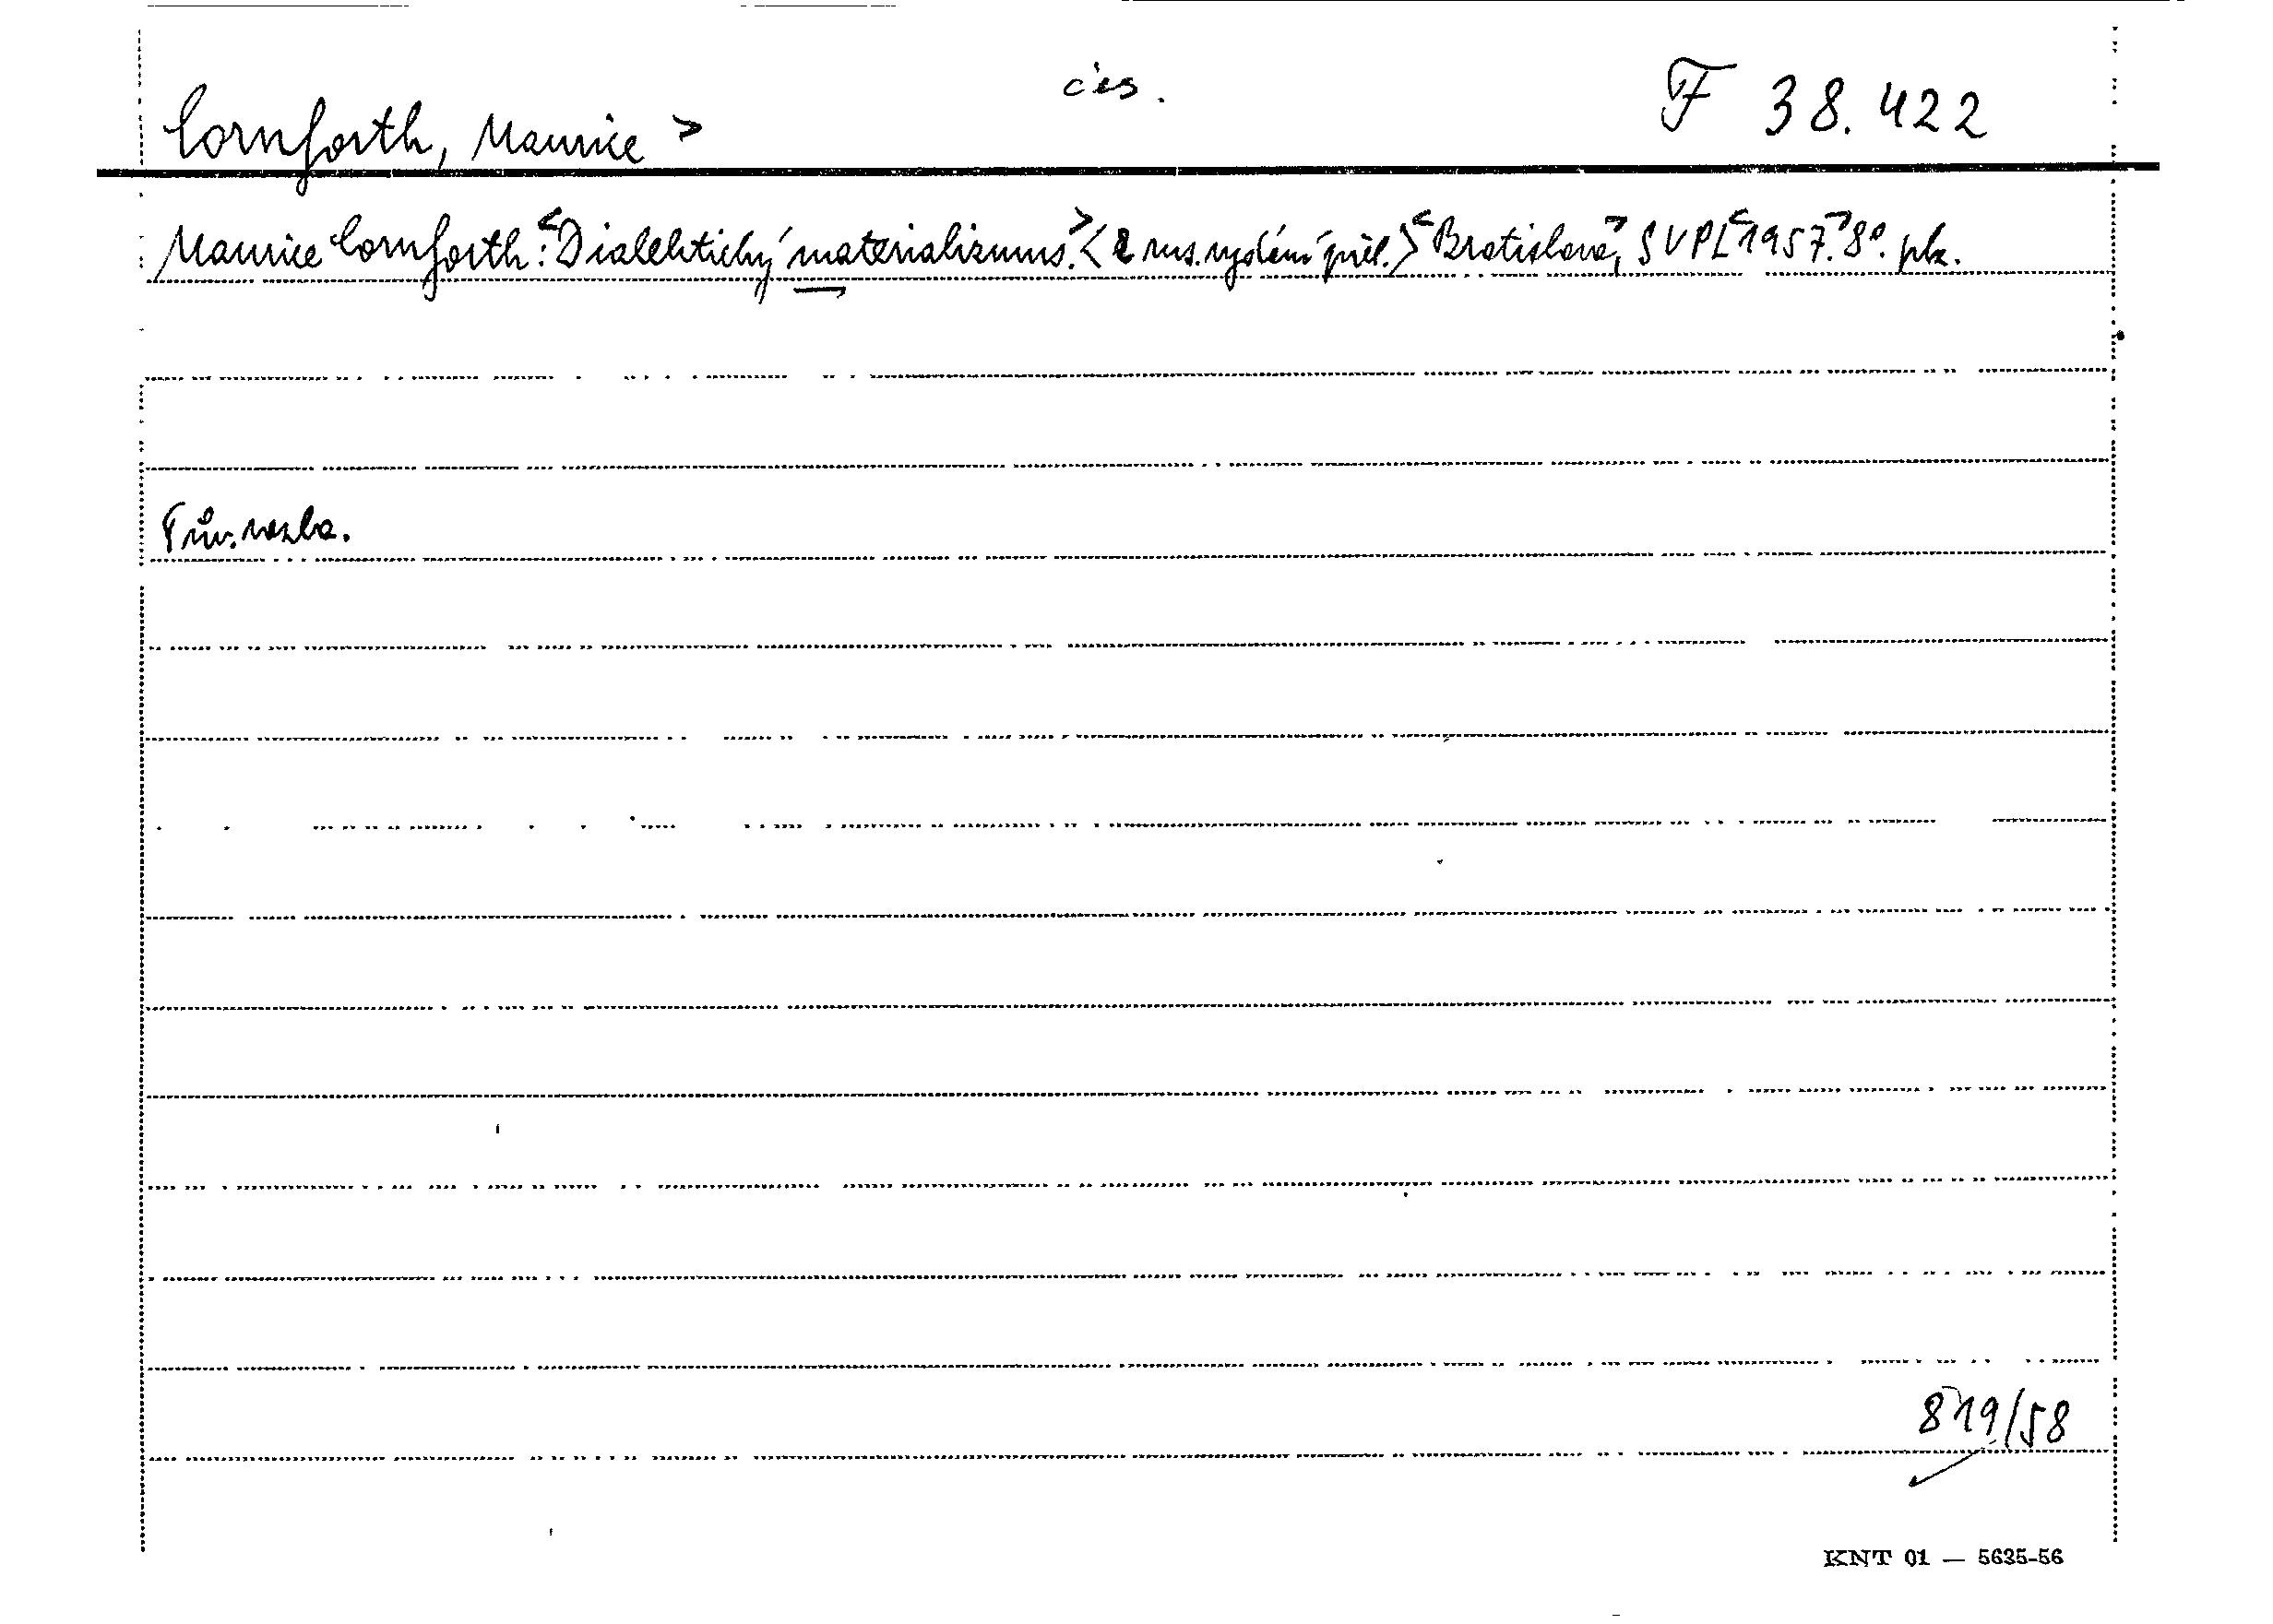 čes.
F 38.422
Cornforth, Maurice >
Maurice Cornforth: <Dialektický materializmus.> <Z rus. vydání přel.> <Bratislava>, SVPL <1957.> 8°. plz.
Pův. vazba.
819/58
KNT 01 — 5635-56